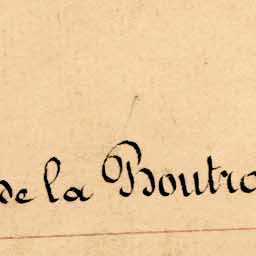 de la Boutro